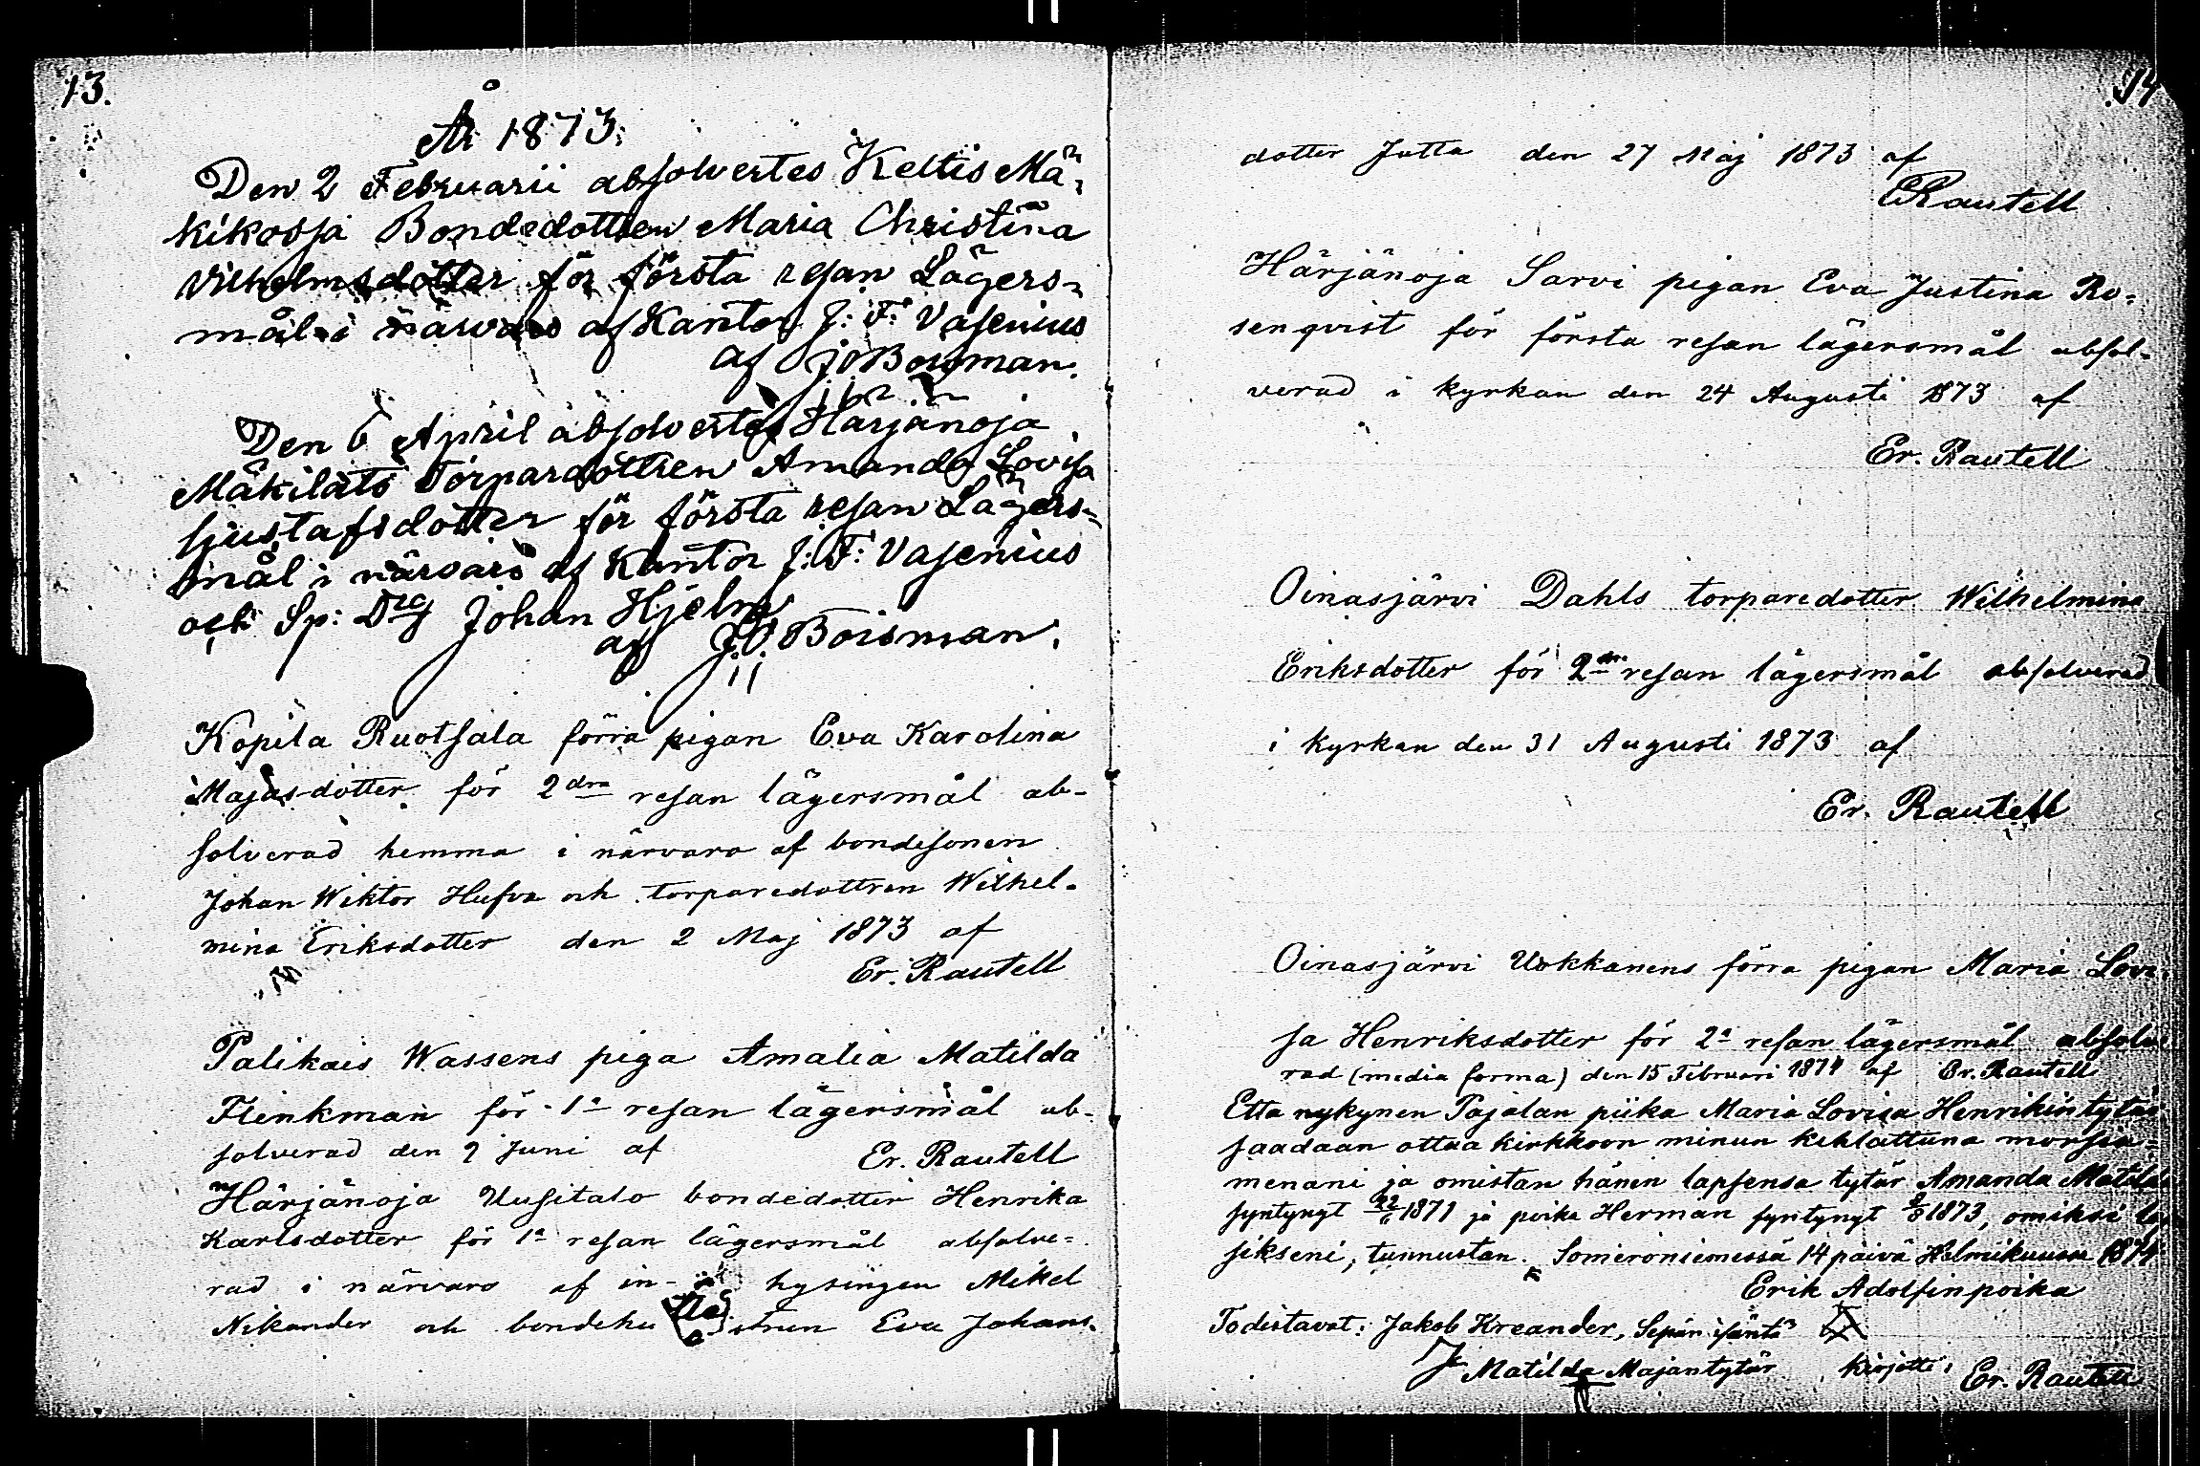 13.
År 1873.
Den 2 Februarii absolvertes Keltis Mä-
kikossa Bondedottren Maria Christina
Vilhelmsdotter för första resan Lägers-
mål i närvaro af Kantor J: F: Vasenius
af J O Boisman.
Den 6 April absolvertes Härjänoja
Mäkiläts Torpardottren Amanda Lovisa
Gustafsdotter för första resan Lägers-
mål i närvaro af Kantor J: F: Vasenius
och Sp: Drg Johan Hjelm
af J. O. Boisman.
Kopila Ruotsala förra pigan Eva Karolina
Majasdotter för 2dra resan lägersmål ab-
solverad hemma i närvaro af bondesonen
Johan Wiktor Hufva och torparedottren Wilhel-
mina Eriksdotter den 2 Maj 1873 af
Er. Rautell
Palikais Wassens piga Amalia Matilda
Flinkman för 1a resan lägersmål ab-
solverad den 2 Juni af Er. Rautell
Härjänoja Uusitalo bondedotter Henrika
Karlsdotter för 1a resan lägersmål absolve-
rad i närvaro af in- hysingen Mikel
Nikander och bondehustrun Eva Johans-
14
dotter Jutta den 27 Maj 1873 af
ERautell
Härjänoja Sarvi pigan Eva Justina Ro-
senqvist för första resan lägersmål absol-
verad i kyrkan den 24 Augusti 1873 af
Er. Rautell
Oinasjärvi Dahls torparedotter Wilhelmina
Eriksdotter för 2dra resan lägersmål absolverad
i kyrkan den 31 Augusti 1873 af
Er. Rautell
Oinasjärvi Uokkanens förra pigan Maria Lovi-
sa Henriksdotter för 2a resan lägersmål absolve-
rad (media forma) den 15 Februari 1874 af Er. Rautell
Etta nykynen Pajalan piika Maria Lovisa Henrikintytär
saadaan ottaa kirkkoon minun kihlattuna morsia-
menani ja omistan hänen lapsensa tytär Amanda Matilda
syntynyt 22/6 1871 ja poika Herman syntynyt 2/8 1873, omiksi lap-
sikseni, tunnustan. Someroniemessä 14 päivä Helmikuussa 1874
Erik Adolfinpoika
Todistavat: Jakob Kreander, Sepän isäntä
Matilda Majantytär kirjotti, Er. Rautell